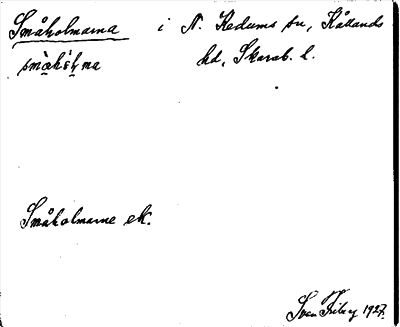 Småholmarna i N. Kedums sn, Kållands
hd, Skarab. l.
Småholmarne ek.
Sven Friberg 1927.